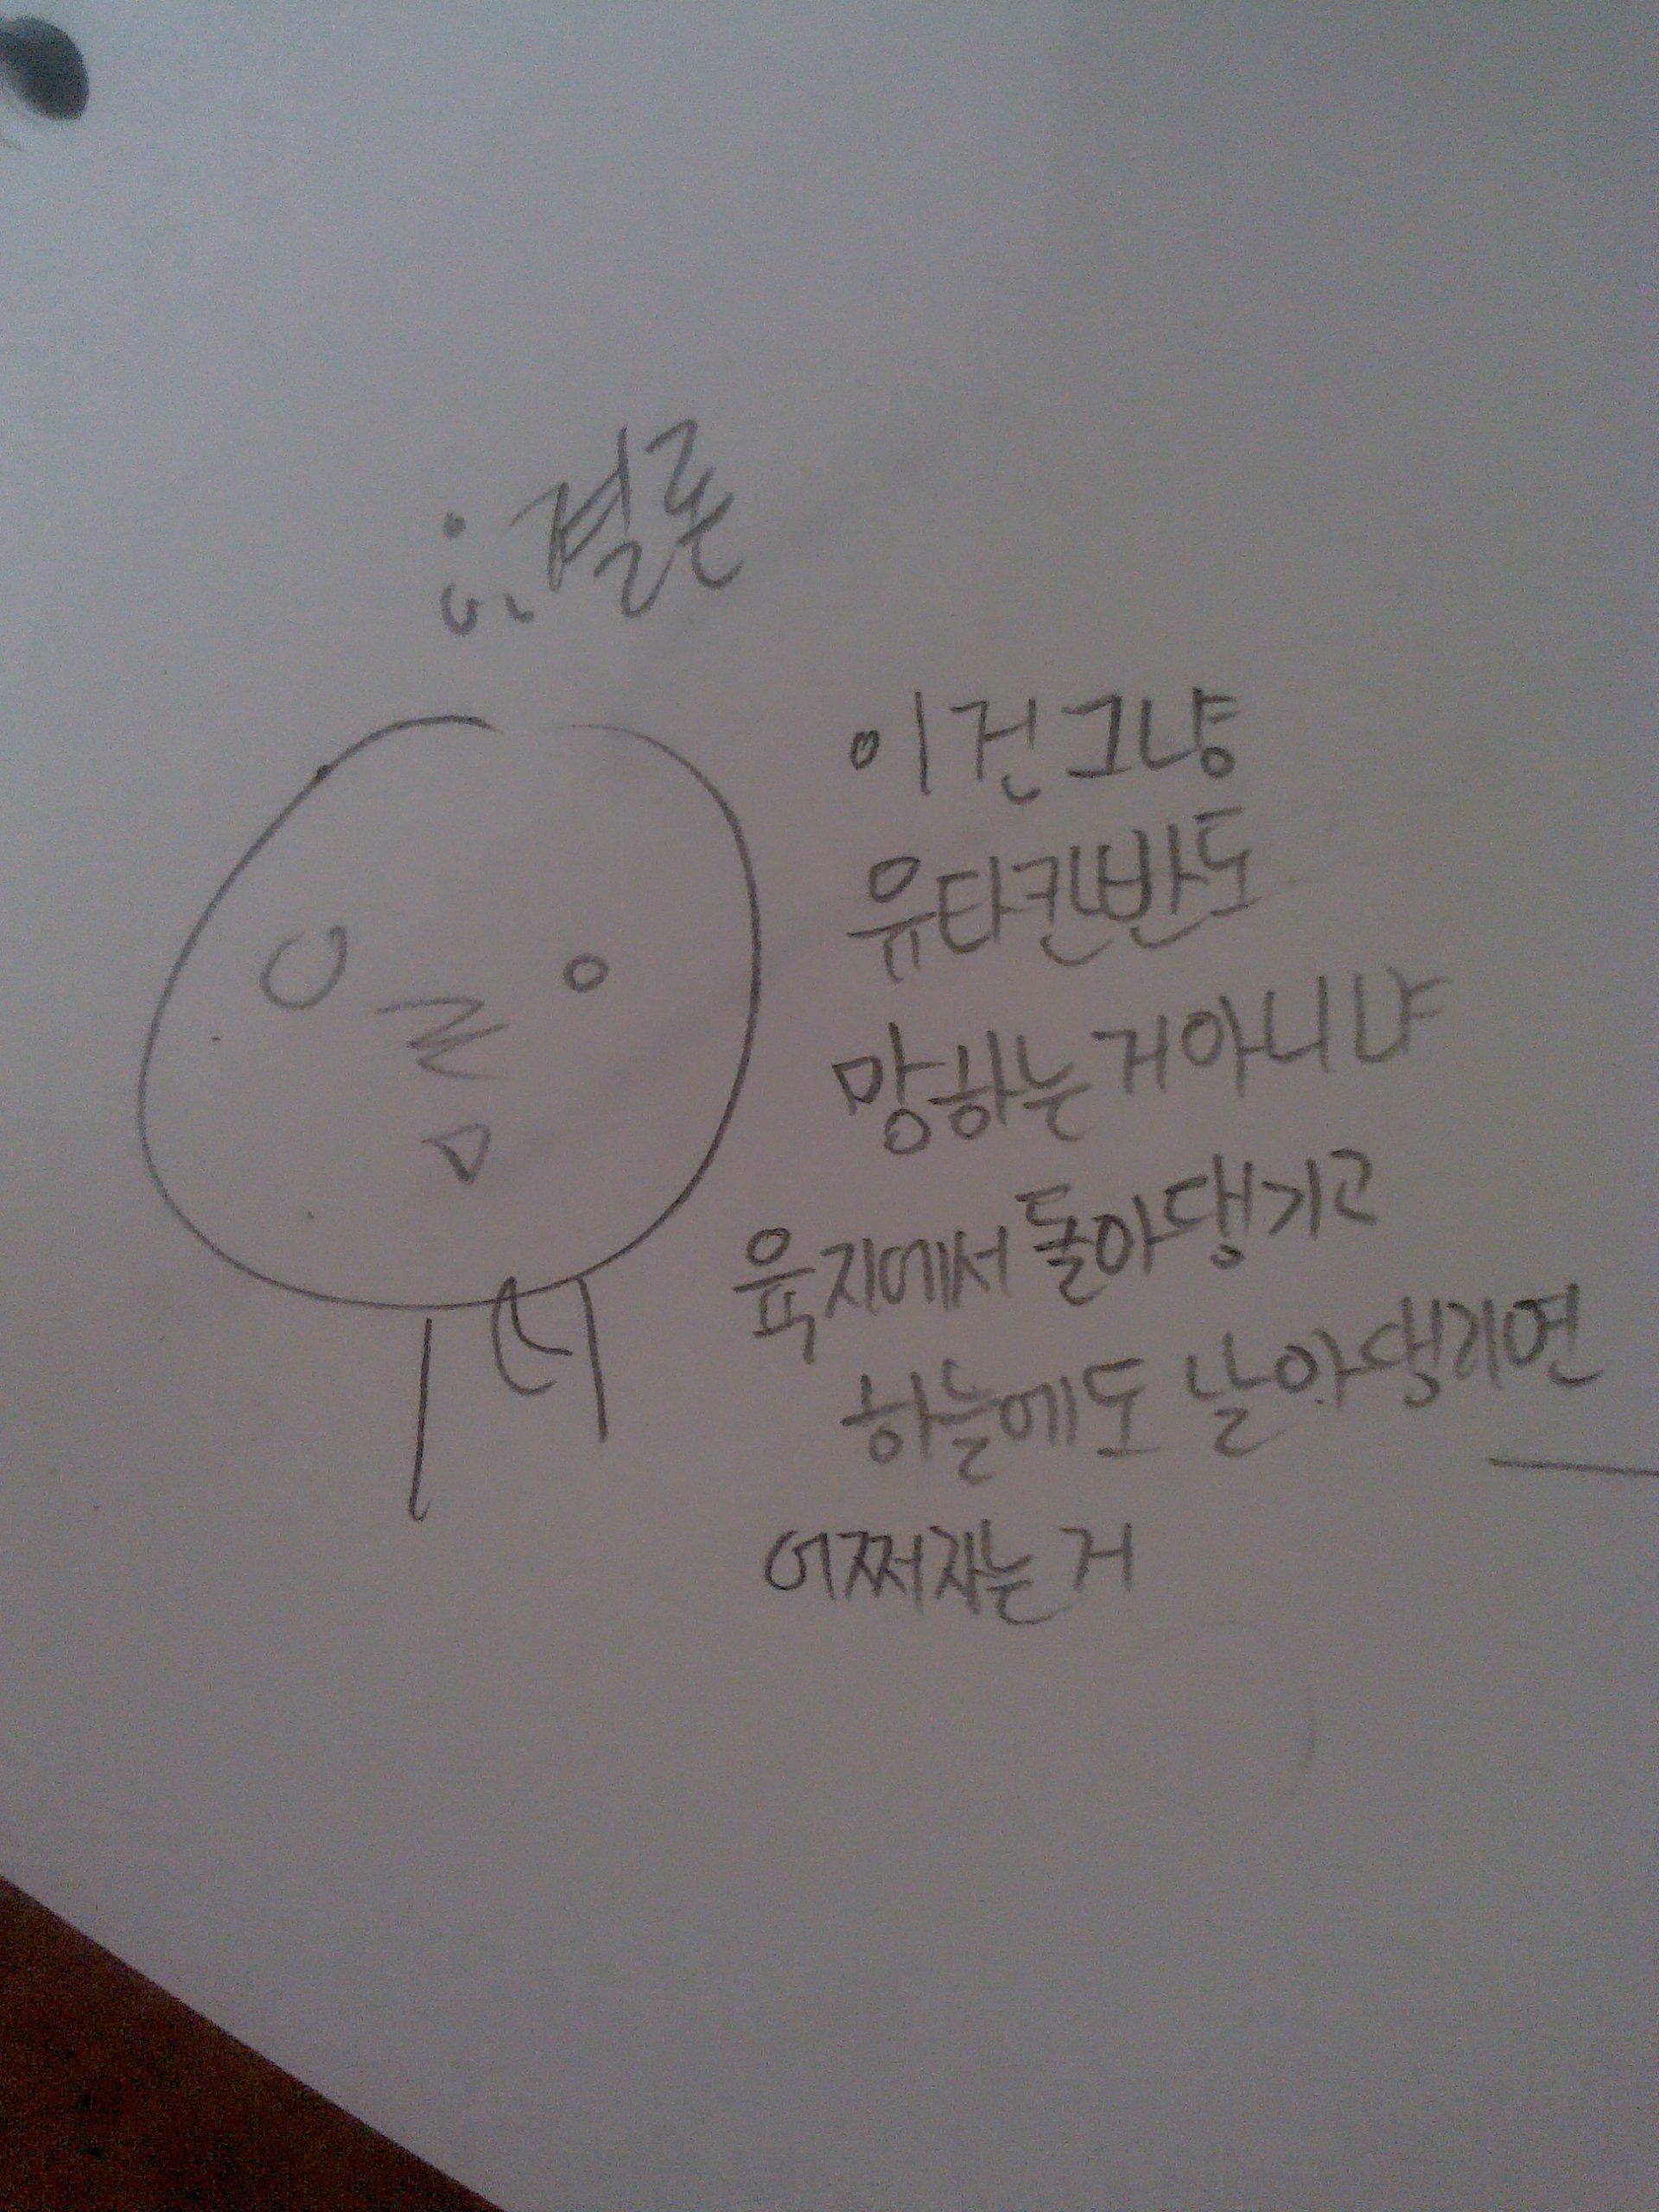 ∴결론
이건그냥
유타칸반도
망하는거아니냐
육지에서 돌아댕기고
하늘에도 날아댕기면
어쩌자는거